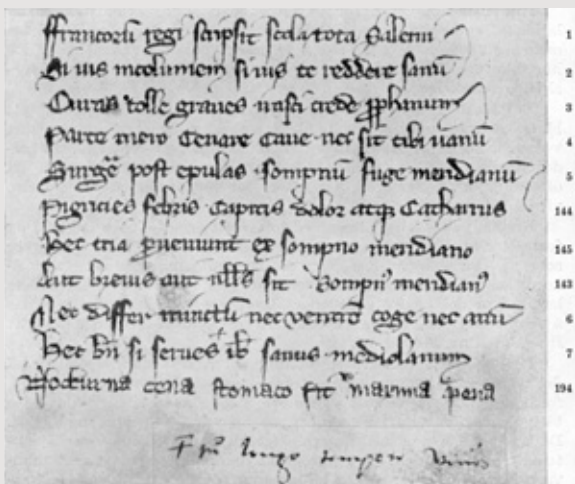 ffrancorū regi scripsit scola tota Salerni 1
Si uis incolumem si uis te reddere sanū 2
Curas tolle graves irasci crede ꝓphanum 3
Parce mero Cenare Caue nec sit tibi uanū 4
Surgē post epulas sompnū fuge meridianū 5
Pigricies febris Capitis dolor atqꝫ Catharrus 144
Hec tria ꝓueniunt ex sompno meridiano 145
Aut breuis aut nullꝰ sit Sompnꝰ meridianꝰ 143
Nec differ minctū nec ventrē coge nec anū 6
Hec bn̄ si serves sanus mediolanum 7
Nocturna cena stomaco fit maxima pena 194
longo tempore